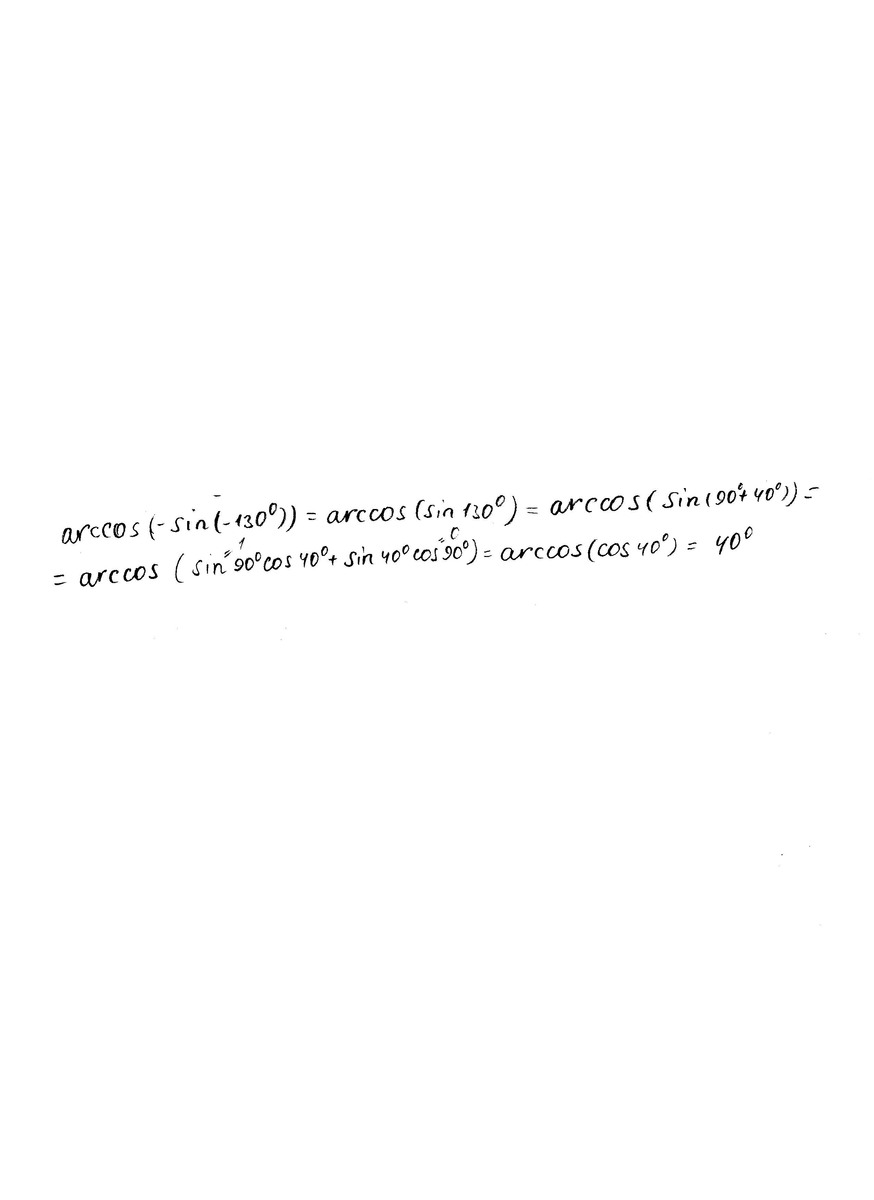 arccos (- sin(-130⁰)) = arccos (sin 130⁰) = arccos ( sin (90⁰+ 40⁰)) =
= arccos ( sin 90⁰ cos 40⁰ + sin 40⁰ cos 90⁰) = arccos (cos 40⁰) = 40⁰